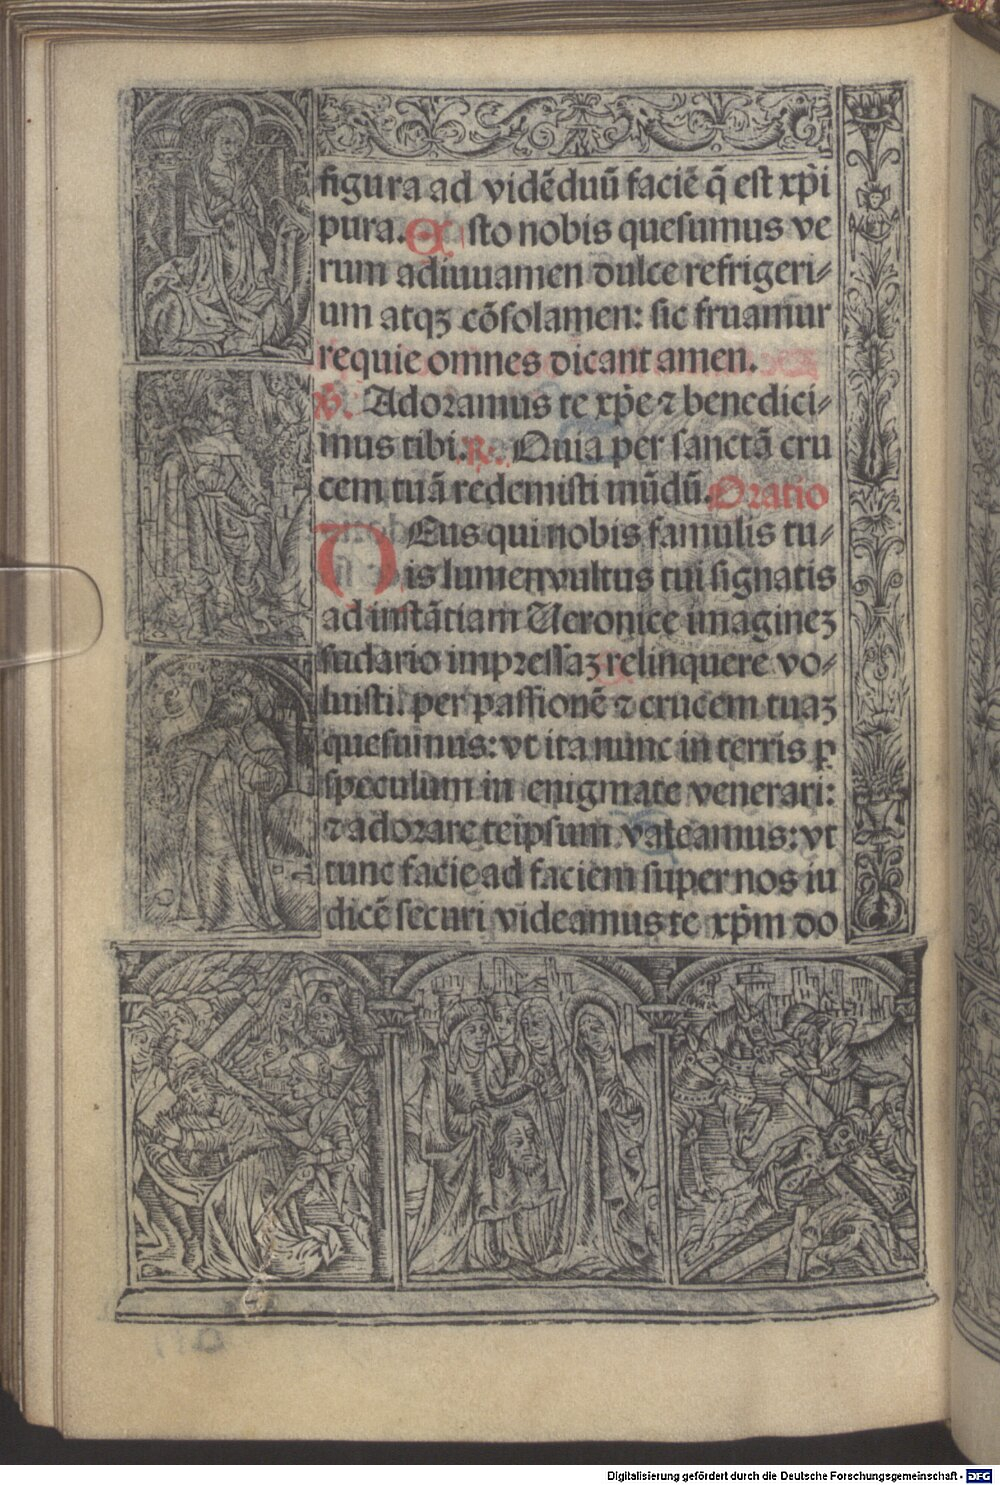 figura ad vidēduū faciē q̄ est xp̄i
pura. Esto nobis quesumus ve
rum adiuuamen dulce refrigeri⸗
um atqꝫ cōsolamen: sic fruamur
requie omnes dicant amen.
℣. Adoramus te xp̄e ⁊ benedici⸗
mus tibi. ℟. Quia per sanctā cru
cem tuā redemisti mūdū. Oratio
DEus qui nobis famulis tu⸗
is lumen vultus tui signatis
ad instātiam Veronice imagineꝫ
sudario impressaꝫ relinquere vo⸗
luisti. per passionē ⁊ crucem tuaꝫ
quesumus: vt ita nunc in terris ꝑ
speculum in enigmate venerari:
⁊ adorare teipsum valeamus: vt
tunc facie ad faciem super nos iu
dicē securi videamus te xp̄m do
Digitalisierung gefördert durch die Deutsche Forschungsgemeinschaft - DFG